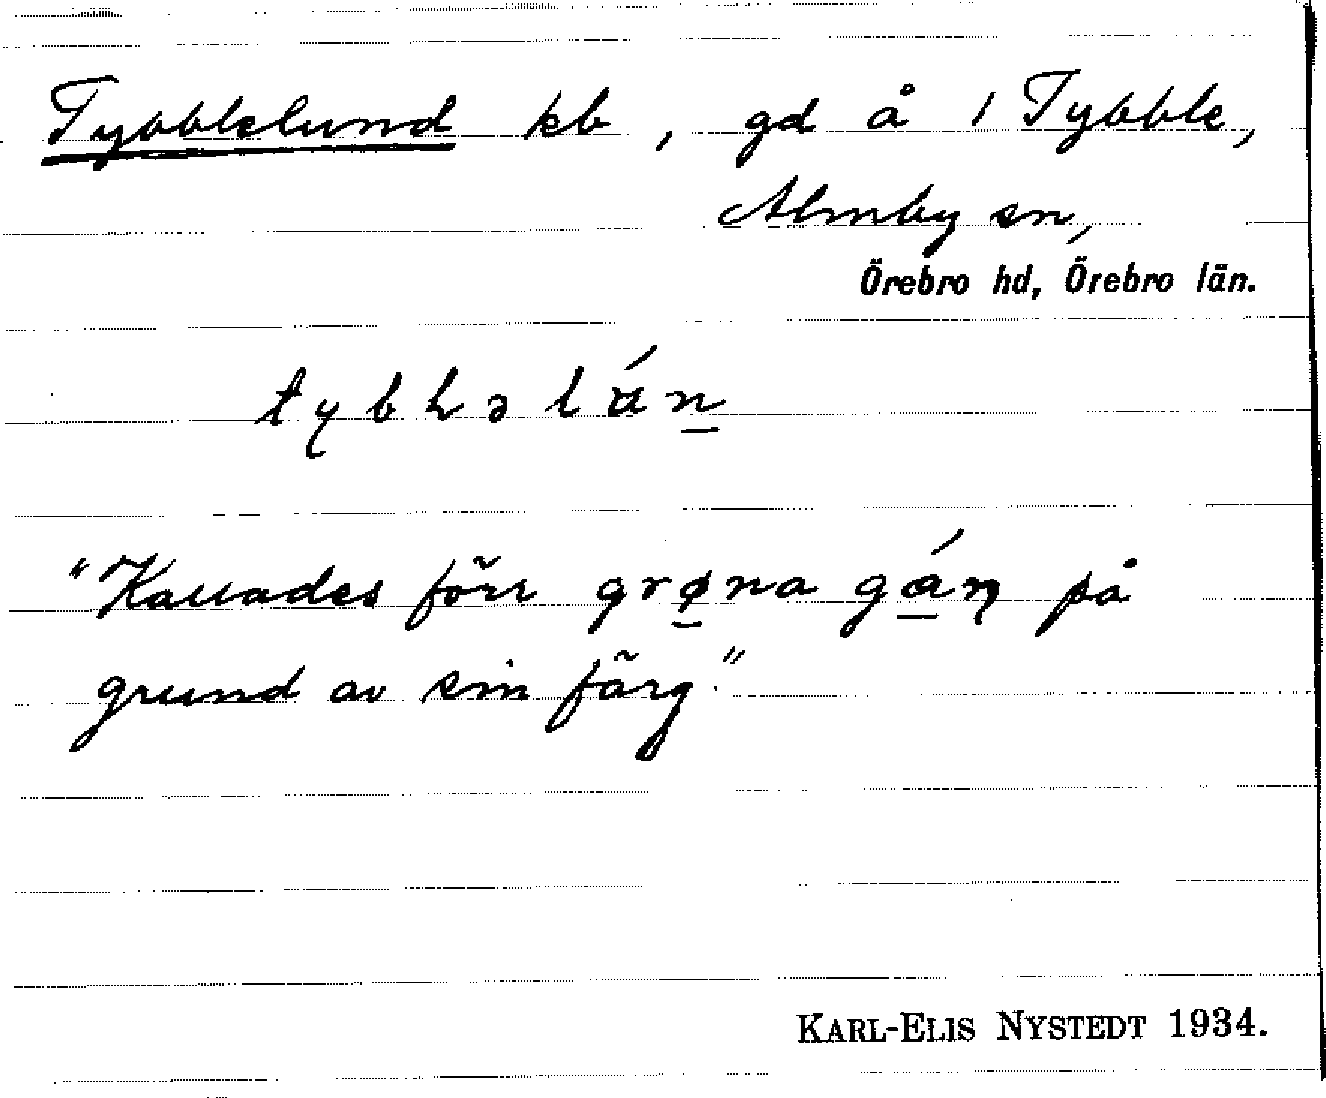 Tybblelund kb, gd å 1 Tybble,
Almby sn,
Örebro hd, Örebro län.
tybləlún
"Kallades förr grøna gán på
grund av sin färg."
KARL-ELIS NYSTEDT 1934.